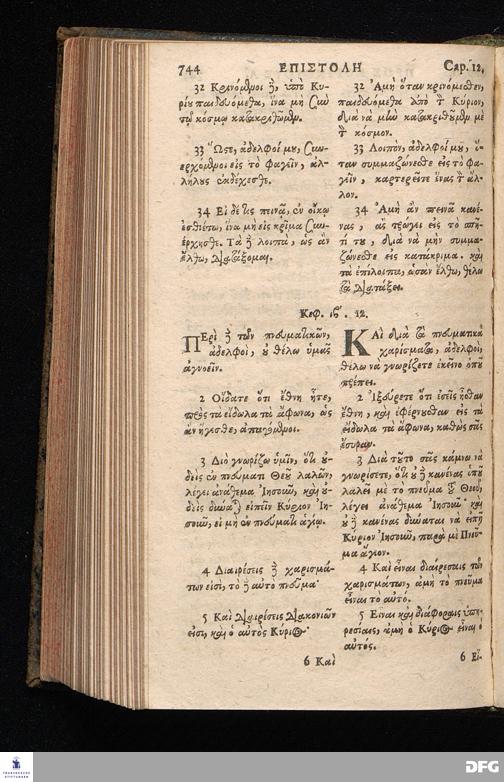 744 ΕΠΙΣΤΟΛΗ Cap. 12.
32 Κρινόμενοι δὲ, ὑπὸ Κυ-
ρίου παιδευόμεθα, ἵνα μὴ σὺν
τῷ κόσμῳ κατακριθῶμεν.
33 Ὥστε, ἀδελφοί μου, συν-
ερχόμενοι εἰς τὸ φαγεῖν, ἀλ-
λήλους ἐκδέχεσθε.
34 Εἰ δέ τις πεινᾷ, ἐν οἴκῳ
ἐσθιέτω, ἵνα μὴ εἰς κρῖμα συν-
έρχησθε. Τὰ δὲ λοιπὰ, ὡς ἂν
ἔλθω, διατάξομαι.
32 Ἀμὴ ὅταν κρινόμεσθεν,
παιδευόμεθα ἀπὸ τὸν Κύριον,
διὰ νὰ μὴν κατακριθοῦμεν μὲ
τὸν κόσμον.
33 Λοιπὸν, ἀδελφοί μου, ὅ-
ταν συμμαζώνεσθε εἰς τὸ φα-
γεῖν, καρτερεῖτε ἕνας τὸν ἄλ-
λον.
34 Ἀμὴ ἂν πεινᾷ κανέ-
νας, ἂς τρώγει εἰς τὸ σπή-
τί του, διὰ νὰ μὴν συμμα-
ζώνεσθε εἰς κατάκριμα. καὶ
τὰ ἐπίλοιπα, ὡσὰν ἔλθω, θέλω
τὰ διατάξει.
Κεφ. ιβʹ. 12.
ΠΕρὶ δὲ τῶν πνευματικῶν,
ἀδελφοὶ, οὐ θέλω ὑμᾶς
ἀγνοεῖν.
2 Οἴδατε ὅτι ἔθνη ἦτε,
πρὸς τὰ εἴδωλα τὰ ἄφωνα, ὡς
ἂν ἤγεσθε, ἀπαγόμενοι.
3 Διὸ γνωρίζω ὑμῖν, ὅτι οὐ-
δεὶς ἐν πνεύματι Θεοῦ λαλῶν,
λέγει ἀνάθεμα Ἰησοῦν, καὶ οὐ-
δεὶς δύναται εἰπεῖν Κύριον Ἰη-
σοῦν, εἰ μὴ ἐν πνεύματι ἁγίῳ.
4 Διαιρέσεις δὲ χαρισμά-
των εἰσὶ, τὸ δὲ αὐτὸ πνεῦμα·
5 Καὶ διαιρέσεις διακονιῶν
εἰσι, καὶ ὁ αὐτὸς Κύριος·
6 Καὶ
ΚΑὶ διὰ τὰ πνευματικὰ
χαρίσματα, ἀδελφοὶ,
θέλω νὰ γνωρίζετε ἐκεῖνο ὁποῦ
πρέπει.
2 Ἰξεύρετε ὅτι ἐσεῖς ἦσθαν
ἔθνη, καὶ ἐφέρνουσθαν εἰς τὰ
εἴδωλα τὰ ἄφωνα, καθὼς σᾶς
ἔσυραν.
3 Διὰ τοῦτο σᾶς κάμνω νὰ
γνωρίσετε, ὅτι οὐδὲ κανένας ὁποῦ
λαλεῖ μὲ τὸ πνεῦμα τοῦ Θεοῦ,
λέγει ἀνάθεμα Ἰησοῦν· καὶ
οὐδὲ κανένας δύναται νὰ εἰπῇ
Κύριον Ἰησοῦν, παρὰ μὲ Πνεῦ-
μα ἅγιον.
4 Καὶ εἶναι διαίρεσαις τῶν
χαρισμάτων, ἀμὴ τὸ πνεῦμα
εἶναι τὸ αὐτό.
5 Εἶναι καὶ διάφοραις ὑπη-
ρεσίαις, ἀμὴ ὁ Κύριος εἶναι ὁ
αὐτός.
6 Εἶ-
FRANCKESCHE
STIFTUNGEN
DFG